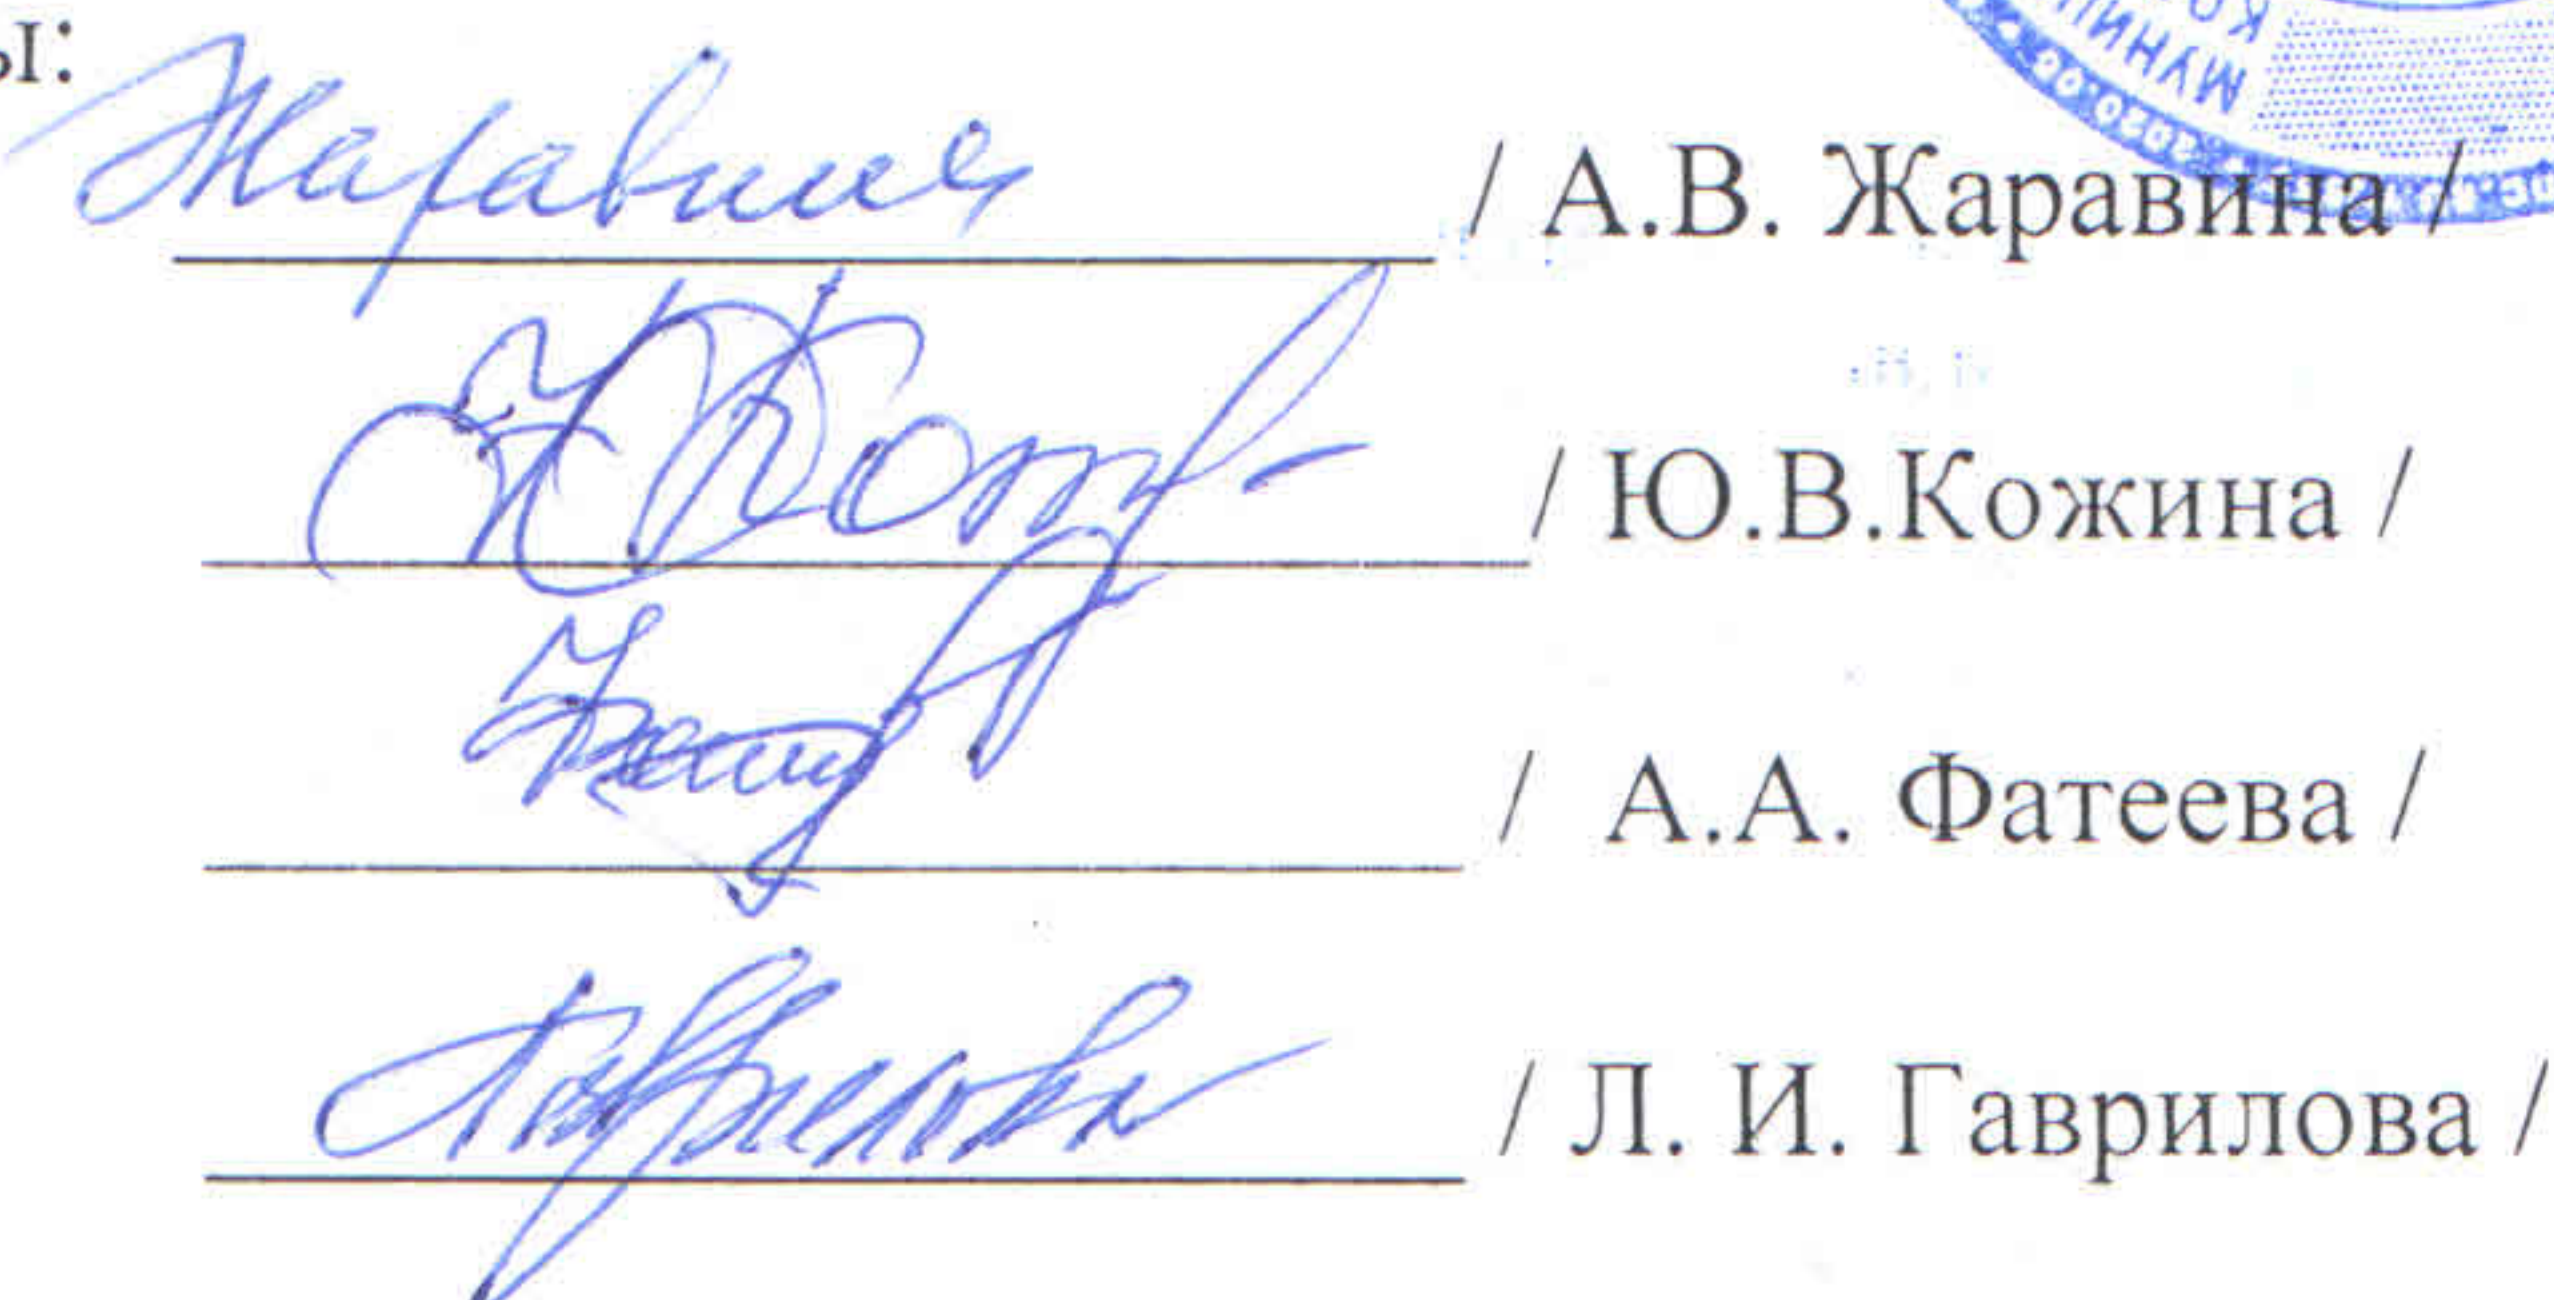 ы:
Жаравина / А.В. Жаравина /
/ Ю.В.Кожина /
/ А.А. Фатеева /
Гаврилова / Л. И. Гаврилова /